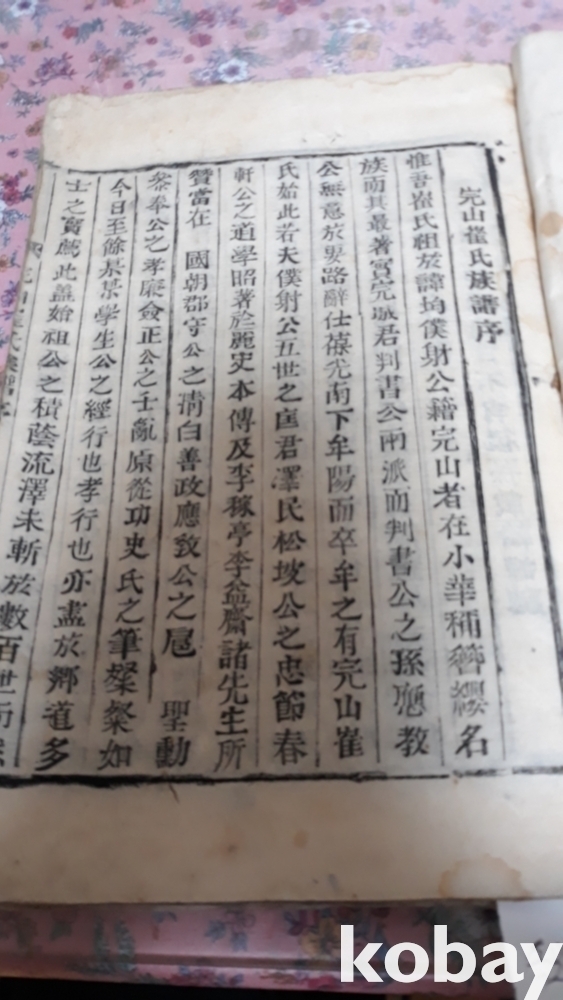 完山崔氏族譜序
惟吾崔氏祖於諱均僕射公籍完山者在小華稱簪纓名
族而其最著實完城君判書公兩派而判書公之孫應教
公無意於要路辭仕蓓光南下牟陽而卒牟之有完山崔
氏始此若夫僕射公五世之匡君澤民松坡公之忠節春
軒公之道學昭著於麗史本傳及李稼亭李益齋諸先生所
贊當在 國朝郡守公之淸白善政應敎公之扈 聖動
叅奉公之孝廉僉正公之壬亂原從功史氏之筆粲粲如
今日至餘某某學生公之經行也孝行也亦盡於鄕道多
士之實薦此盖始祖公之積蔭流澤未斬於數百世
kobay